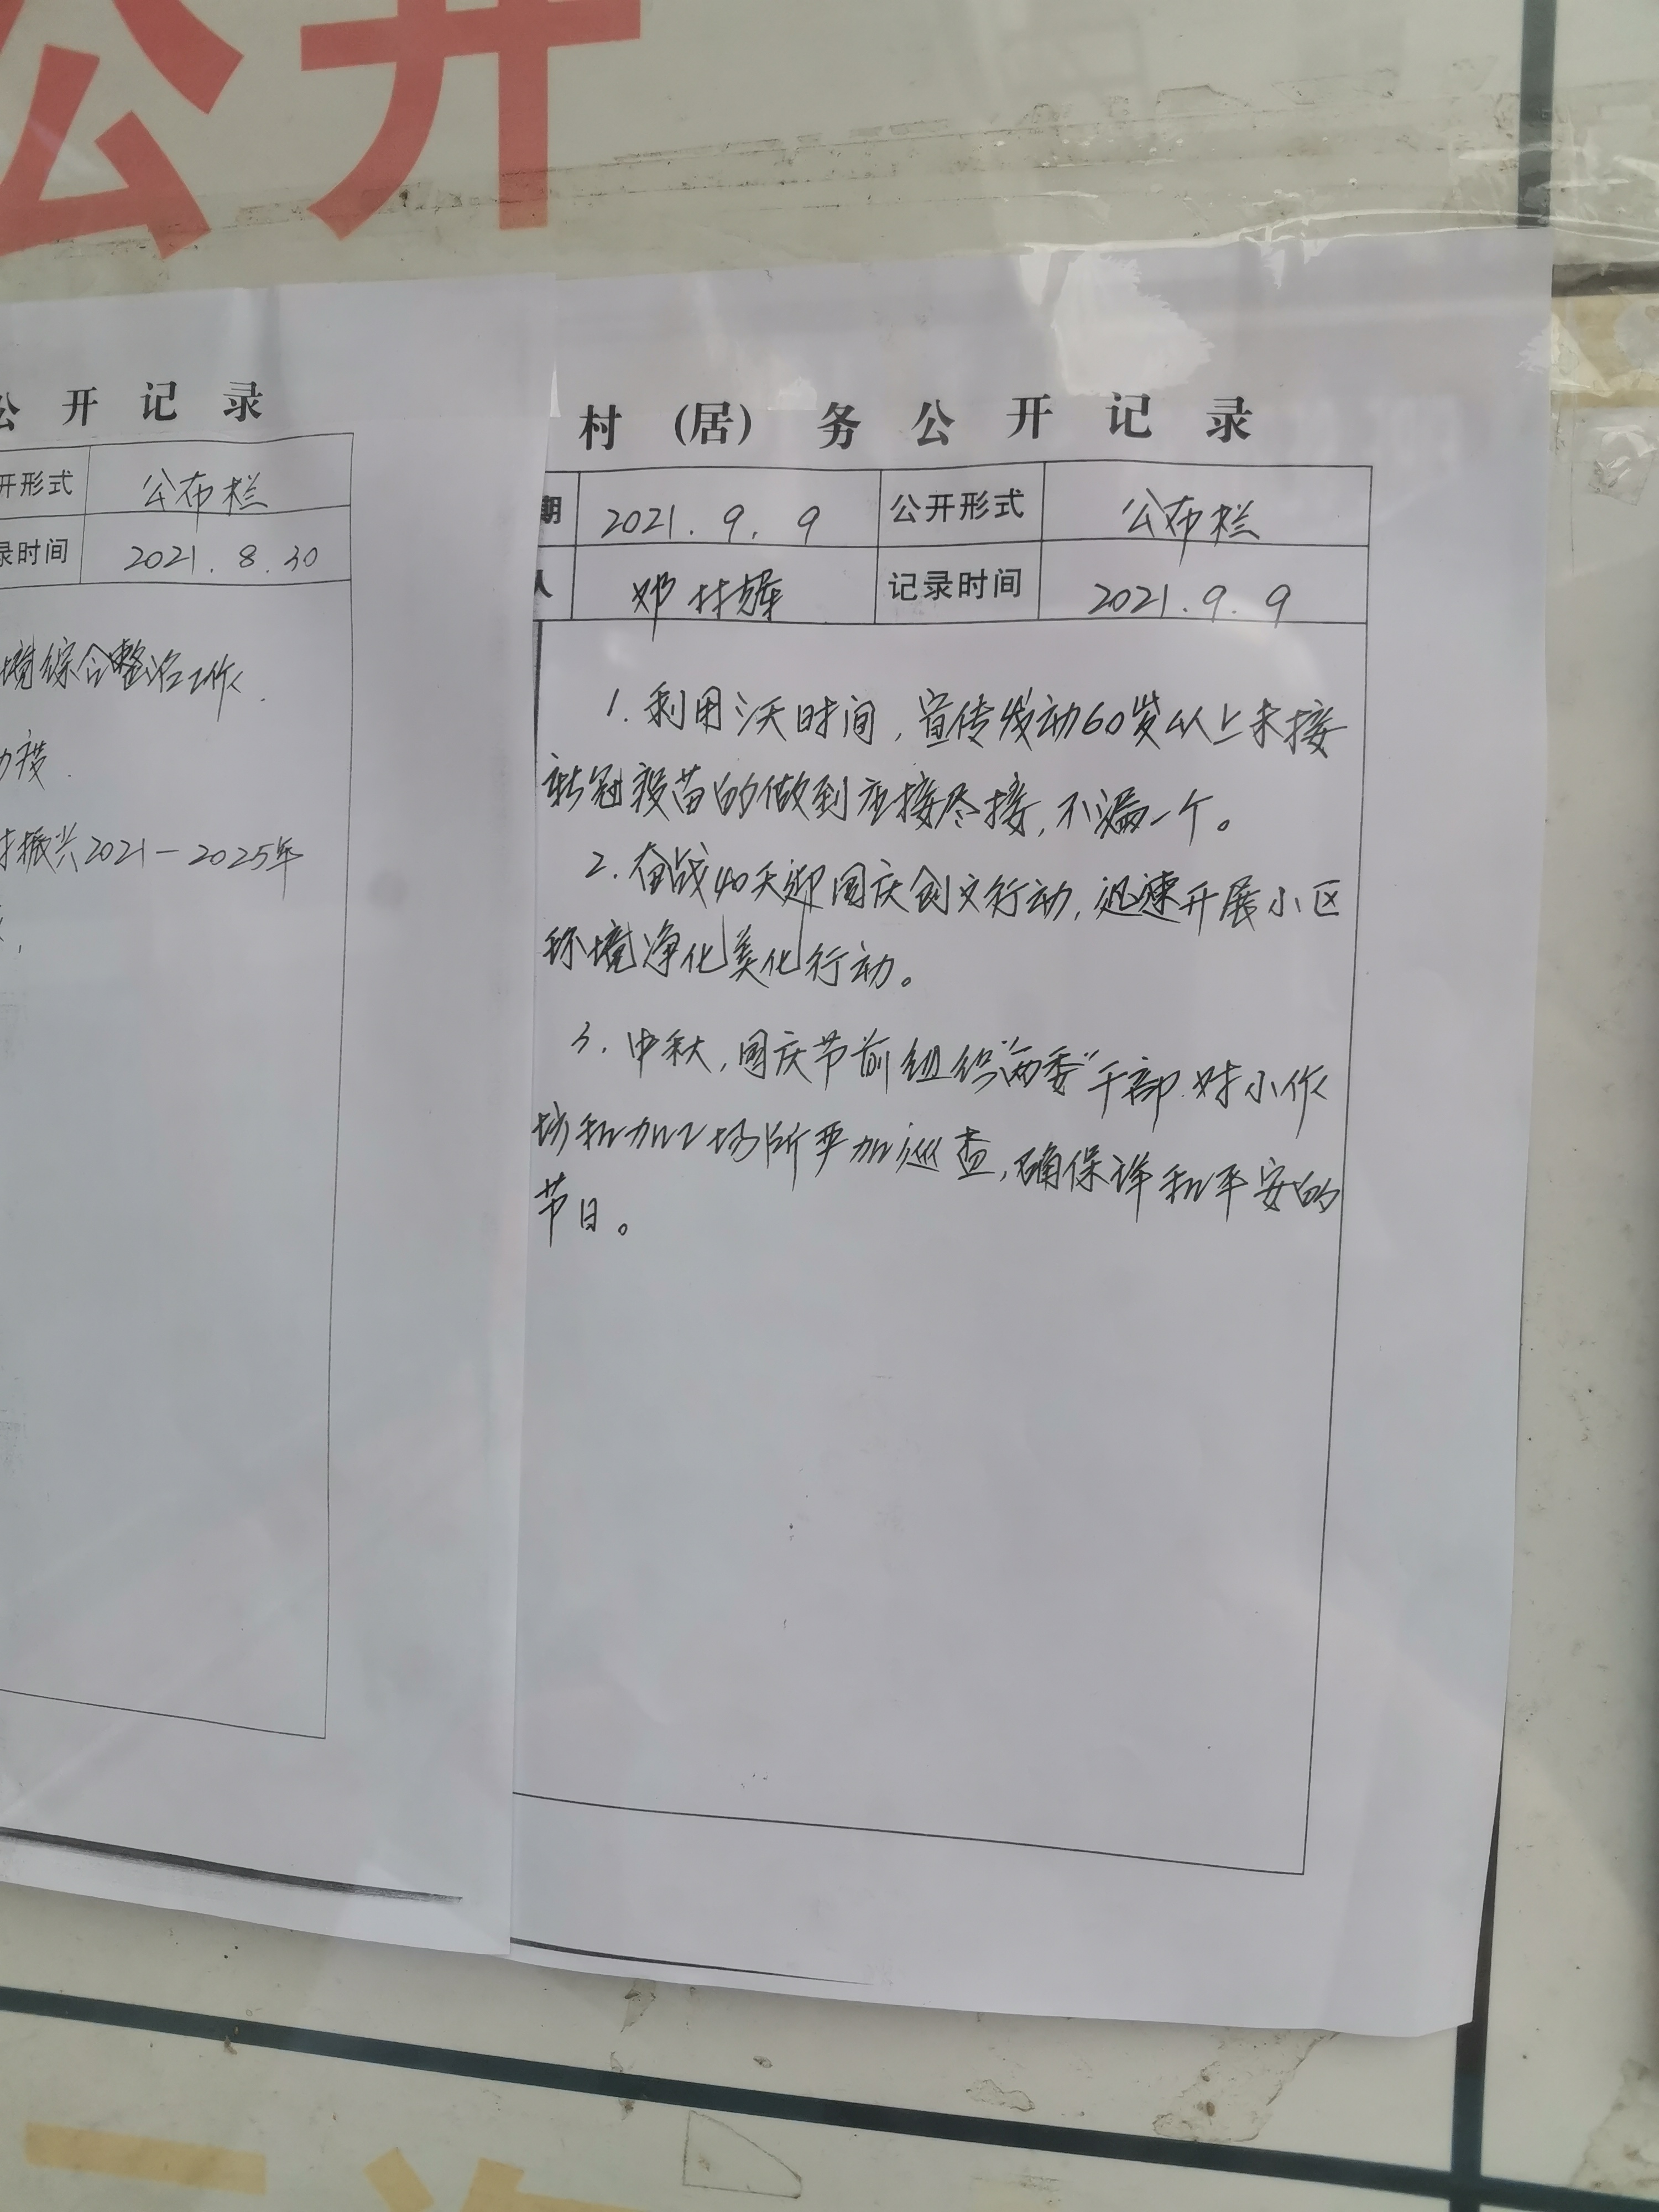 公开
公开记录
开形式 公布栏
录时间 2021.8.30
境综合整治工作.
村振兴2021—2025年
村(居)务公开记录
期 2021.9.9 公开形式 公布栏
人 邓林辉 记录时间 2021.9.9
1.利用3天时间,宣传发动60岁以上未接
新冠疫苗的做到应接尽接,不漏一个。
2.奋战40天迎国庆创文行动,迅速开展小区
环境净化美化行动。
3.中秋,国庆节前组织“两委”干部.对小作
坊和加工场所严加巡查,确保祥和平安的
节日。